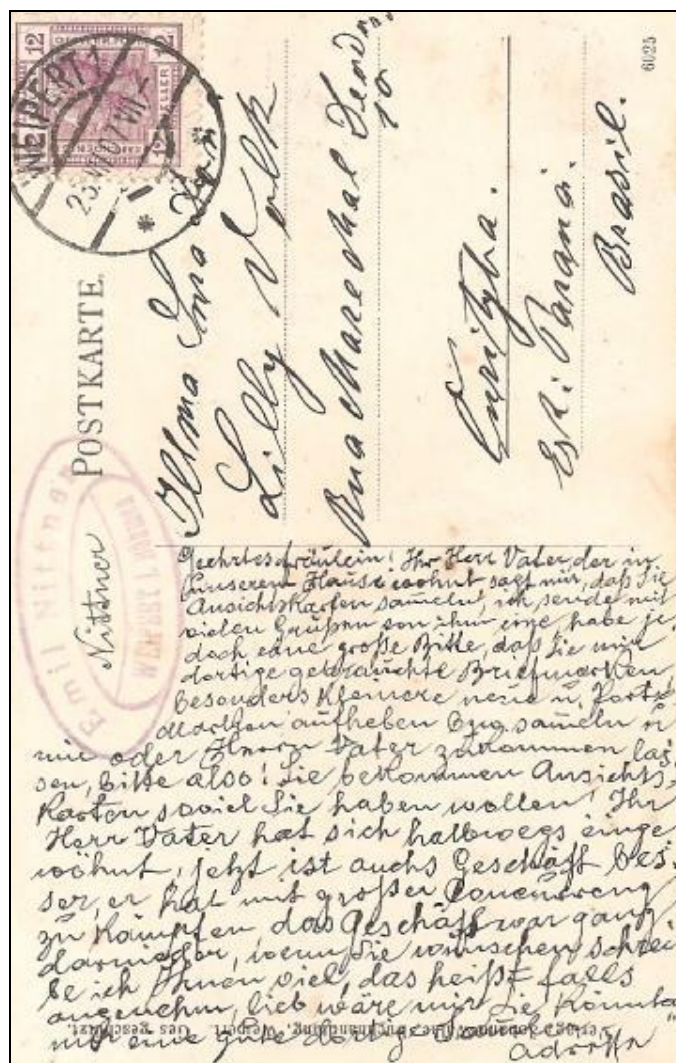 12 12
WEIPERT 1
POSTKARTE.
6025
Illma Snra Dna
Lilly Volk
Rua Marechal Deodoro
10
Curityba.
Est: Paraná.
Brasil.
Emil Nittner
WEIPERT i. Böhmen
Nittner
Geehrtes Fräulein! Ihr Herr Vater, der in
unserem Hause wohnt sagt mir, daß Sie
Ansichtskarten sam̄eln, ich sende mit
vielen Grüßen von ihm eine habe je
doch eine große Bitte, daß Sie mir
dortige gebrauchte Briefmarken,
besonders kleinere neue u. Porto
marken aufheben bzw. sam̄eln u
mir oder Ihrem Vater zukommen las
sen, bitte also! Sie bekommen Ansichts
Karten soviel Sie haben wollen! Ihr
Herr Vater hat sich halbwegs einge
wöhnt, jetzt ist auchs Geschäft bes
ser, er hat mit großer Concurrenz
zu kämpfen, das Geschäft war ganz
darnieder, wenn Sie wünschen schrei
be ich Ihnen viel, das heißt falls
angenehm, lieb wäre mir Sie könnten
mir eine gute dortige
Adresse
Weipert. Ges. geschützt.